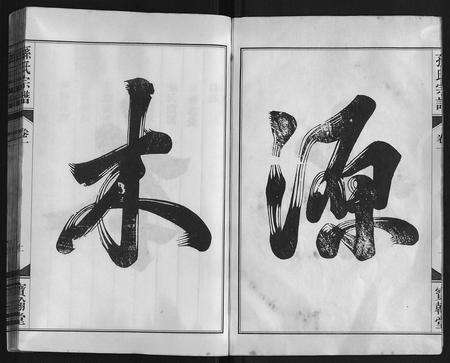 源
木
孫氏宗譜
卷一
孫氏宗譜
卷一